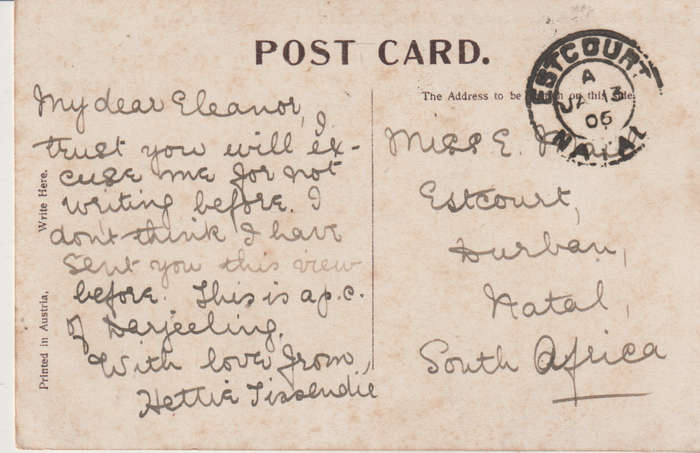 POST CARD.
The Address to be on this side.
Write Here.
Printed in Austria.
My dear Eleanor, I
trust you will ex-
cuse me for not
writing before. I
don't think I have
sent you this view
before. This is a p.c.
of Darjeeling.
With love from,
Hettie Tissendie
Miss E.
Estcourt,
Durban,
Natal,
South Africa
ESTCOURT
A
JA 13
06
NATAL